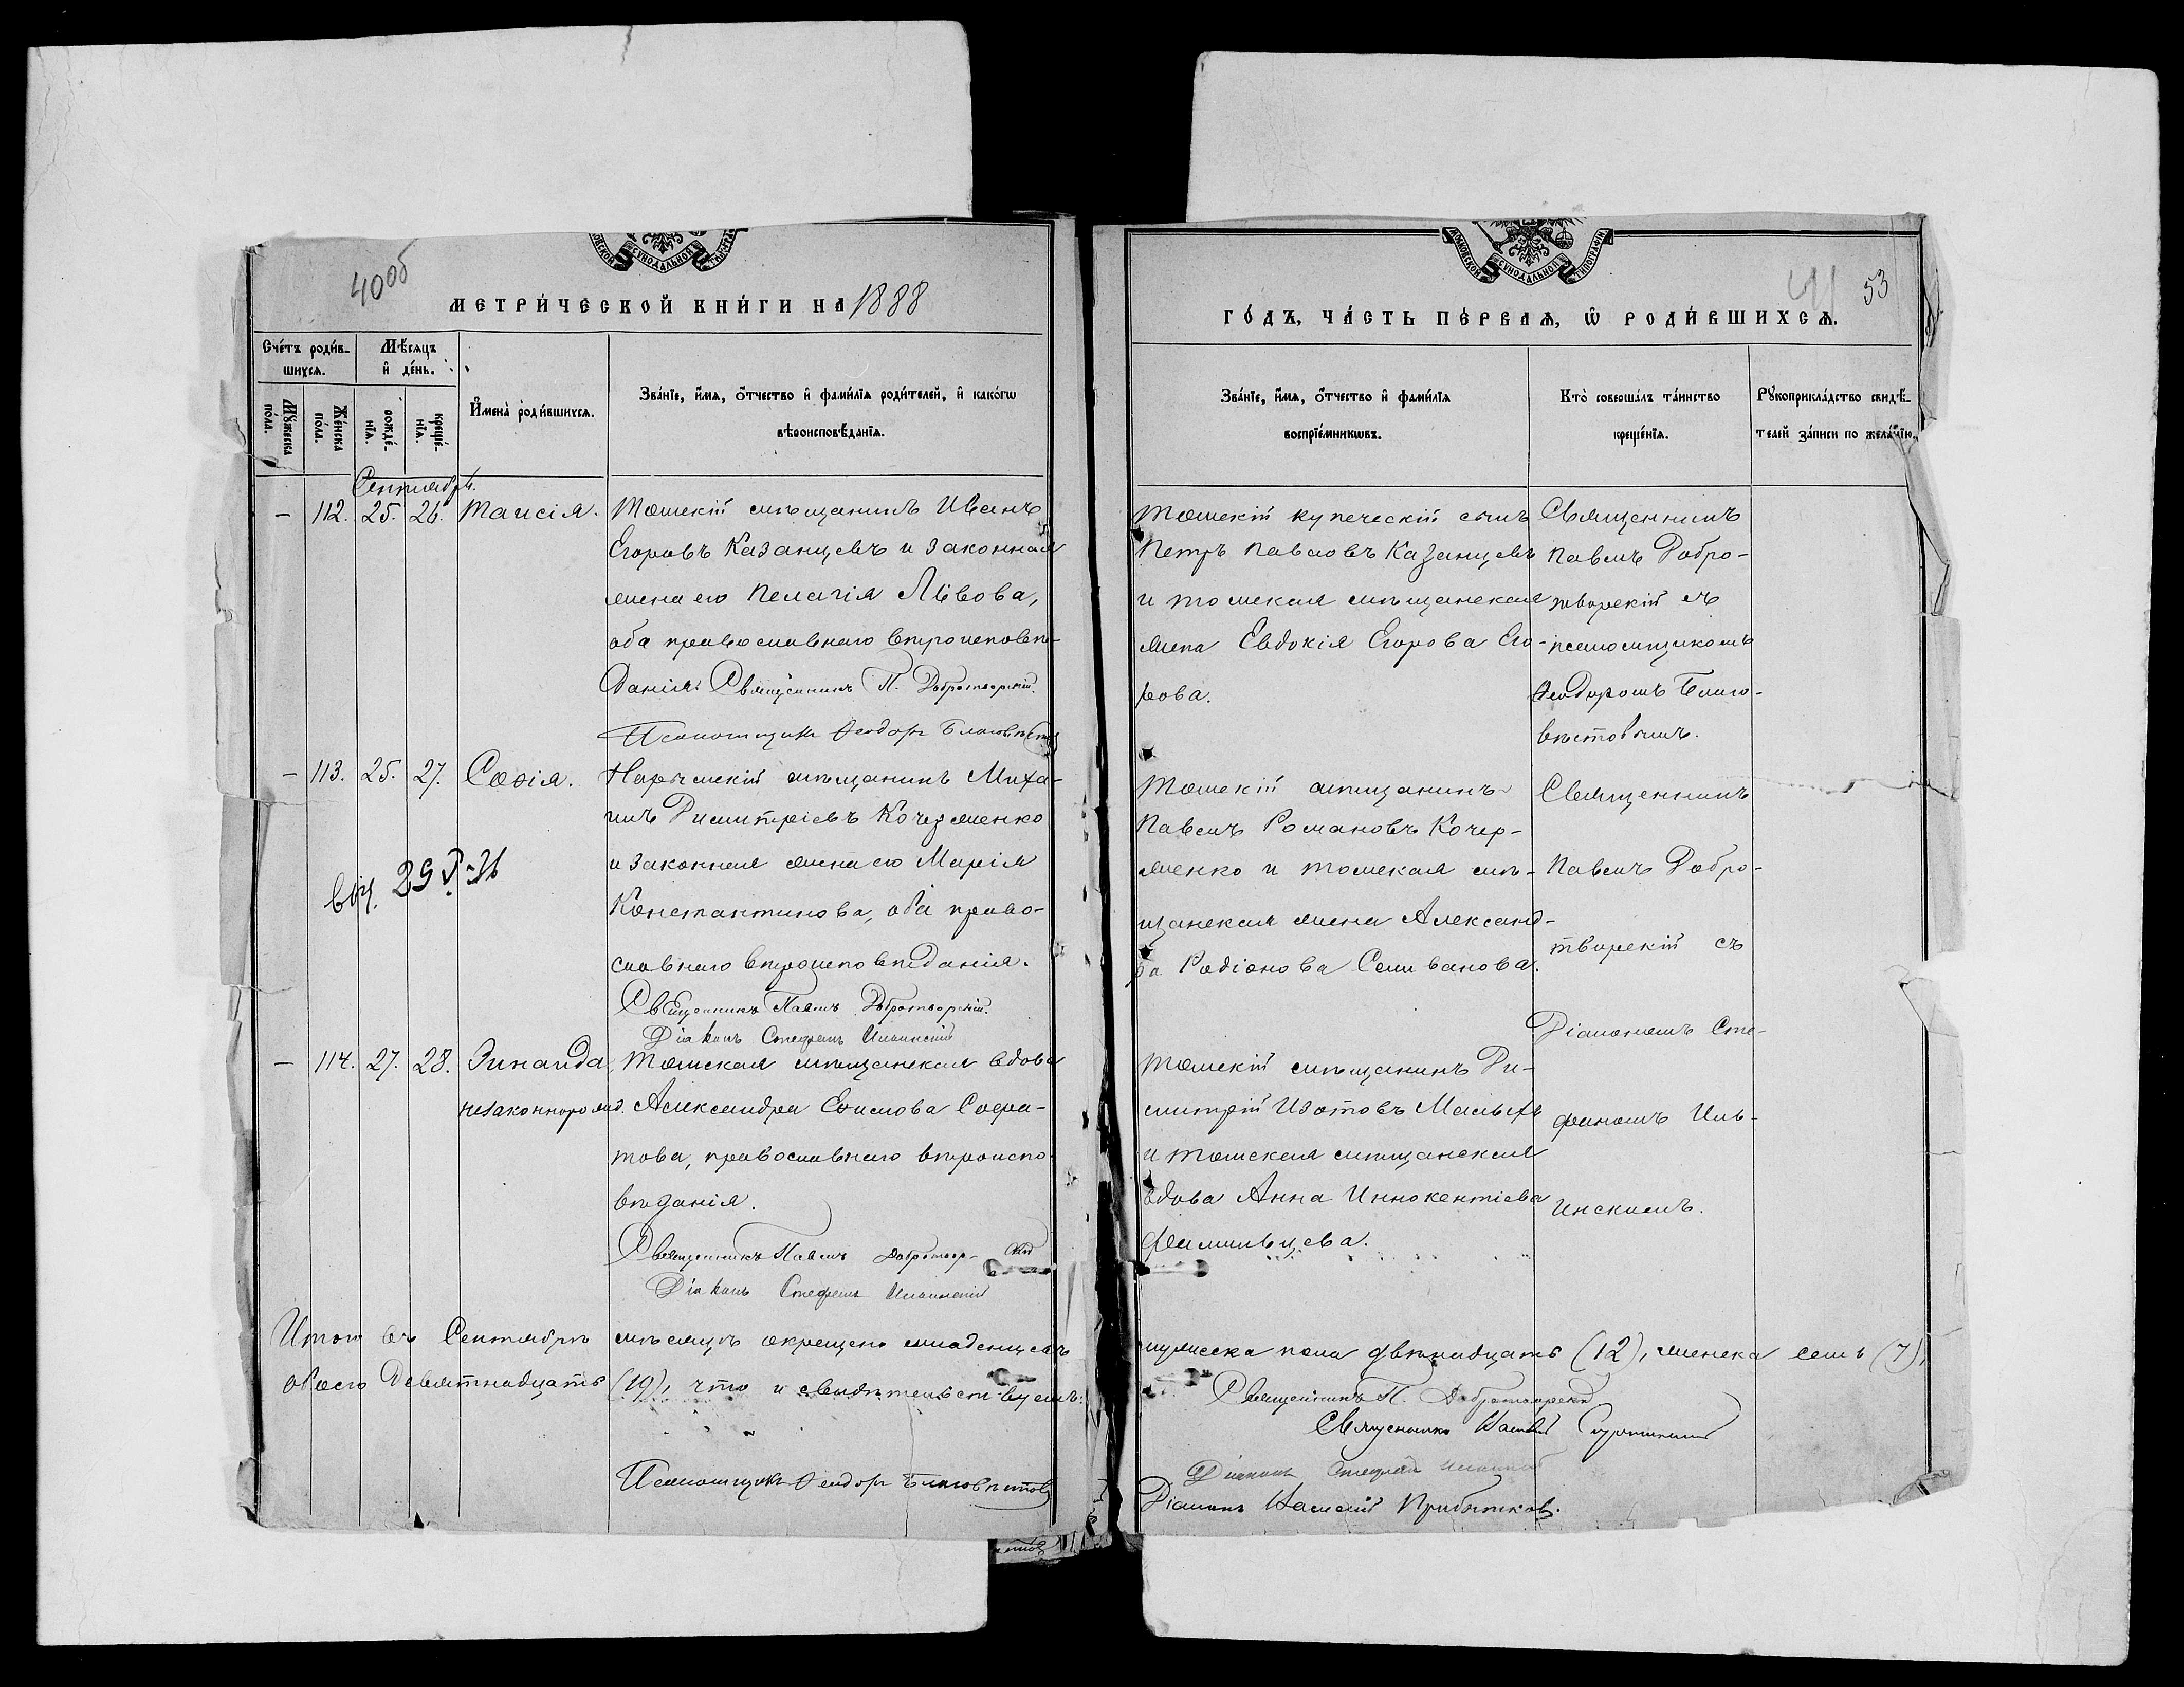 40об
МЕТРИ́ЧЕСКОЙ КНИ́ГИ НА 1888
Сче́тъ роди́в-
шихся.
Мѣ́сяцъ
и҆ де́нь.
Мꙋ́жеска
по́ла.
Же́нска
по́ла.
рожде́-
нїѧ.
креще́-
нїѧ.
И҆мена̀ роди́вшихся.
Зва́нїе, и҆́мя, ѻ҆́тчество и҆ фами́лїя роди́телей, и҆ како́гѡ
вѣроисповѣ́данїя.
Сентябрь.
— 112. 25. 26. Таисія. Томскій мѣщанинъ Иванъ
Егоровъ Казанцевъ и законная
жена его Пелагія Львова,
оба православнаго вѣроисповѣ-
данія. Священникъ П. Добротворскій.
Псаломщикъ Ѳеодоръ Благовѣстов
— 113. 25. 27. Софія. Нарымскій мѣщанинъ Миха-
илъ Димитріевъ Кочерженко
и законная жена его Марія
Константинова, оба право-
славнаго вѣроисповѣданія.
Священникъ Павелъ Добротворскій.
Діаконъ Стефанъ Ильинскій
29 V-36
— 114. 27. 28. Зинаида, Томская мѣщанская вдова
незаконнорожд. Александра Ефимова Софа-
това, православнаго вѣроиспо-
вѣданія.
Священникъ Павелъ Добротворскій
Діаконъ Стефанъ Ильинскій
Итого въ Сентябрѣ мѣсяцѣ окрещено младенцевъ
обоего девятнадцать (19), что и свидѣтельствуемъ:
Псаломщикъ Ѳеодоръ Благовѣстов
41 53
ГО́ДЪ, ЧА́СТЬ ПЕ́РВАЯ, Ѽ РОДИ́ВШИХСЯ.
Зва́нїе, и҆́мя, ѻ҆́тчество и҆ фами́лїя
воспрїе́мникѡвъ.
Кто̀ соверша́лъ та́инство
креще́нїя.
Рꙋкоприкла́дство свидѣ́-
телей за́писи по жела́нїю.
Томскій купеческій сынъ
Петръ Павловъ Казанцевъ
и томская мѣщанская
жена Евдокія Егорова Его-
рова.
Священникъ
Павелъ Добро-
творскій съ
псаломщикомъ
Ѳеодоромъ Благо-
вѣстовымъ.
Томскій мѣщанинъ
Павелъ Романовъ Кочер-
женко и томская мѣ-
щанская жена Александ-
ра Родіонова Селиванова.
Священникъ
Павелъ Добро-
творскій съ
Діакономъ Сте-
фаномъ Иль-
инскимъ.
Томскій мѣщанинъ Ди-
митрій Изотовъ Малыхъ
и томская мѣщанская
вдова Анна Иннокентіева
Фамильцева.
мужеска пола двѣнадцать (12), женска семь (7),
Священникъ П. Добротворскій
Священникъ
Діаконъ Стефанъ Ильинскій
Діаконъ Василій Прибытковъ.